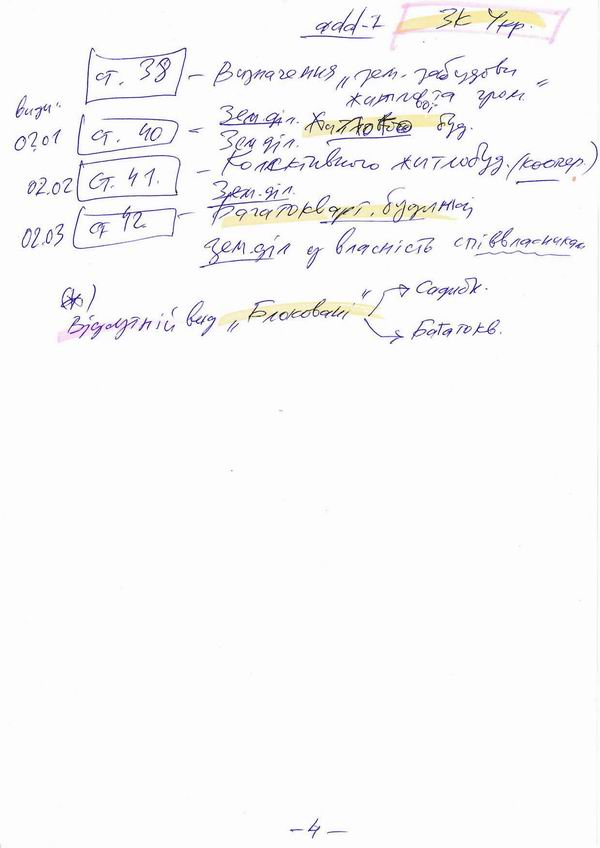 add-1 ЗК Укр.
ст. 38 – Визначення „зем. забудови
житлової та гром."
види:
02.01 ст. 40 – Зем. діл. Житлового буд.
Зем. діл.
02.02 ст. 41. – Колективного житлобуд. (коопер.)
Зем. діл.
02.03 ст 42. – Багатокварт. будинки
зем. діл у власність співвласникам
Відсутній вид „Блоковані" Садибк.
Багатокв.
– 4 –